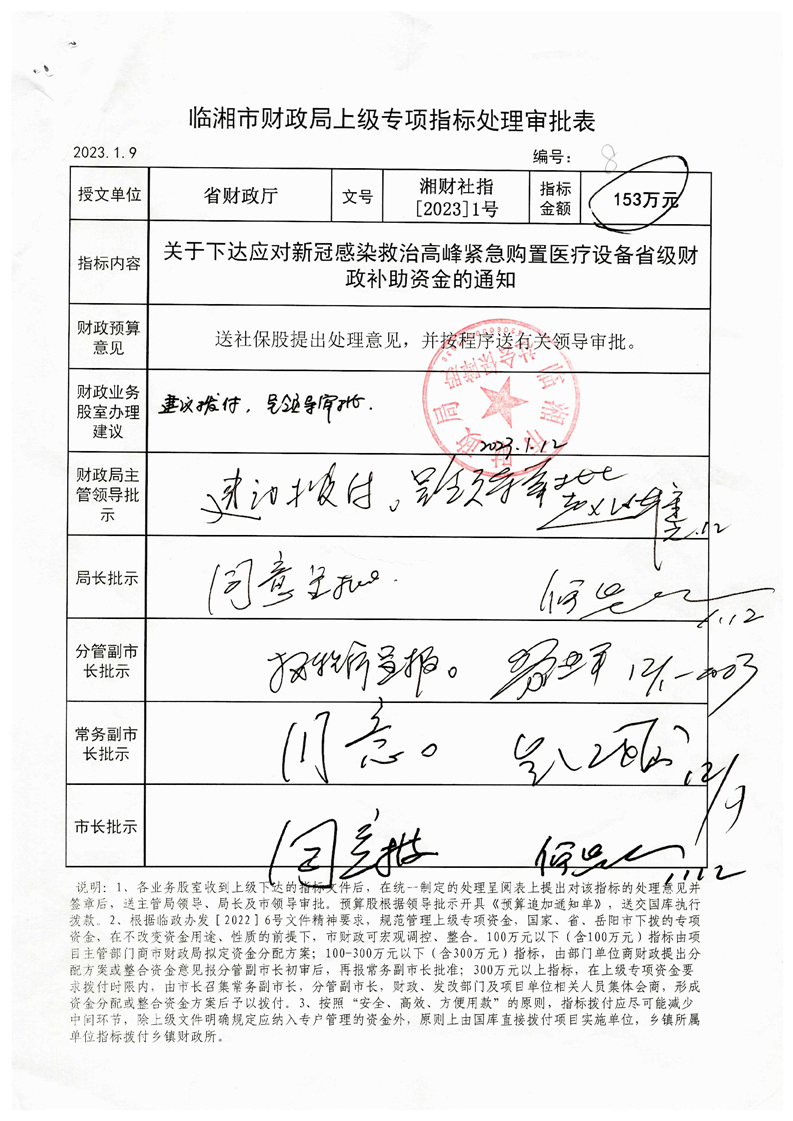 临湘市财政局上级专项指标处理审批表
2023.1.9 编号： 8
授文单位 省财政厅 文号 湘财社指[2023]1号 指标金额 153万元
指标内容 关于下达应对新冠感染救治高峰紧急购置医疗设备省级财
政补助资金的通知
财政预算
意见 送社保股提出处理意见，并按程序送有关领导审批。
财政业务
股室办理
建议 建议拨付，呈领导审批.
2023.1.12
财政局主
管领导批
示 建议拨付。呈领导审批
1.12
局长批示 同意呈批.
1.12
分管副市
长批示 呈报。 12/1-2023
常务副市
长批示 同意。 12/1
市长批示 同意拨 1.12
说明：1、各业务股室收到上级下达的指标文件后，在统一制定的处理呈阅表上提出对该指标的处理意见并
签章后，送主管局领导、局长及市领导审批。预算股根据领导批示开具《预算追加通知单》，送交国库执行
拨款。2、根据临政办发[2022]6号文件精神要求，规范管理上级专项资金，国家、省、岳阳市下拨的专项
资金，在不改变资金用途、性质的前提下，市财政可宏观调控、整合。100万元以下（含100万元）指标由项
目主管部门商市财政局拟定资金分配方案；100-300万元以下（含300万元）指标，由部门单位商财政提出分
配方案或整合资金意见报分管副市长初审后，再报常务副市长批准；300万元以上指标，在上级专项资金要
求拨付时限内，由市长召集常务副市长，分管副市长，财政、发改部门及项目单位相关人员集体会商，形成
资金分配或整合资金方案后予以拨付。3、按照“安全、高效、方便用款”的原则，指标拨付应尽可能减少
中间环节，除上级文件明确规定应纳入专户管理的资金外，原则上由国库直接拨付项目实施单位，乡镇所属
单位指标拨付乡镇财政所。